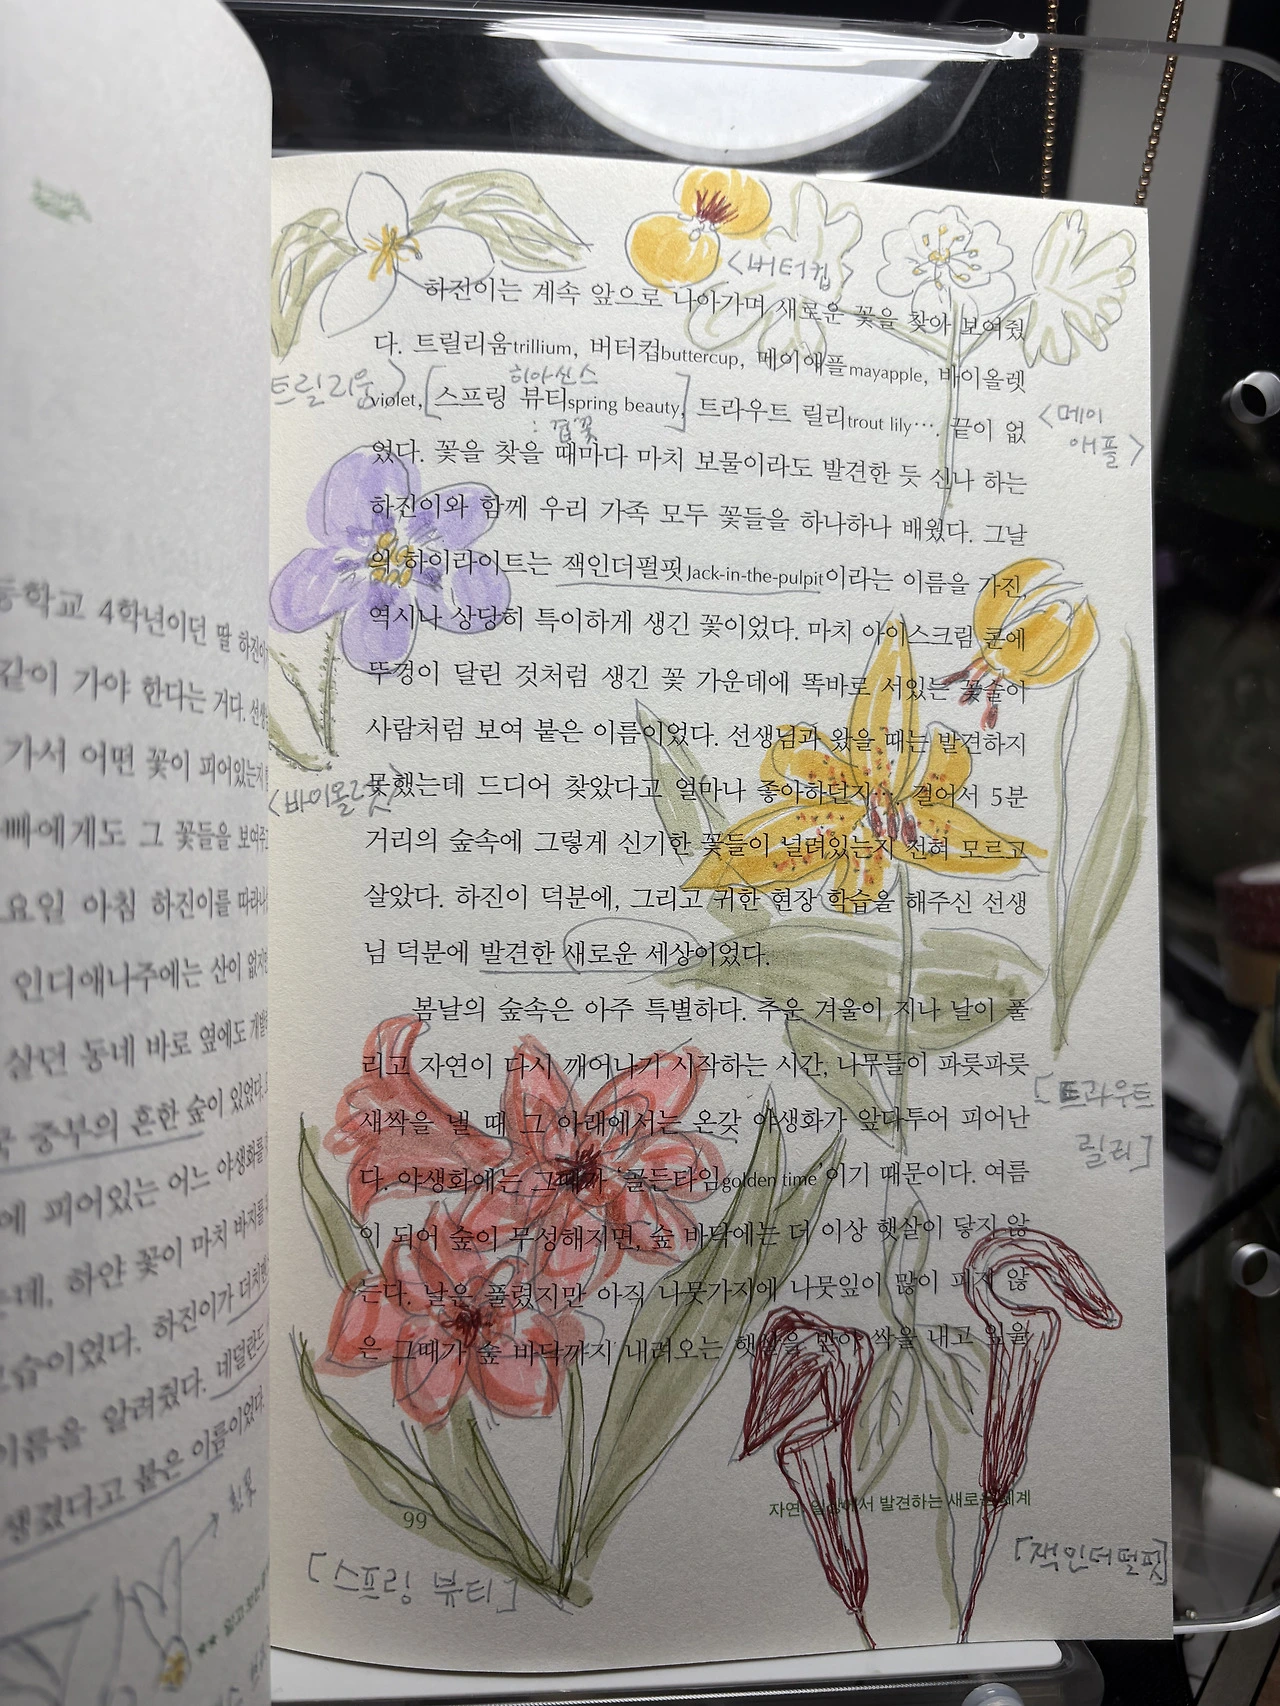 등학교 4학년이던 딸 하진이
같이 가야 한다는 거다. 선생
가서 어떤 꽃이 피어있는지
빠에게도 그 꽃들을 보여주
요일 아침 하진이를 따라나
인디애나주에는 산이 없지만
살던 동네 바로 옆에도 개발
중부의 흔한 숲이 있었다.
에 피어있는 어느 야생화를
는데, 하얀 꽃이 마치 바지를
모습이었다. 하진이가 더치맨
이름을 알려줬다. 네덜란드
생겼다고 붙은 이름이었다.
<버터컵>
하진이는 계속 앞으로 나아가며 새로운 꽃을 찾아 보여줬
다. 트릴리움trillium, 버터컵buttercup, 메이애플mayapple, 바이올렛
트릴리움>
히아신스
violet, [스프링 뷰티spring beauty,] 트라우트 릴리trout lily…. 끝이 없
: 겹꽃
<메이
애플>
었다. 꽃을 찾을 때마다 마치 보물이라도 발견한 듯 신나 하는
하진이와 함께 우리 가족 모두 꽃들을 하나하나 배웠다. 그날
의 하이라이트는 잭인더펄핏Jack-in-the-pulpit이라는 이름을 가진,
역시나 상당히 특이하게 생긴 꽃이었다. 마치 아이스크림 콘에
뚜껑이 달린 것처럼 생긴 꽃 가운데에 똑바로 서있는 꽃술이
사람처럼 보여 붙은 이름이었다. 선생님과 왔을 때는 발견하지
못했는데 드디어 찾았다고 얼마나 좋아하던지…. 걸어서 5분
<바이올렛>
거리의 숲속에 그렇게 신기한 꽃들이 널려있는지 전혀 모르고
살았다. 하진이 덕분에, 그리고 귀한 현장 학습을 해주신 선생
님 덕분에 발견한 새로운 세상이었다.
봄날의 숲속은 아주 특별하다. 추운 겨울이 지나 날이 풀
리고 자연이 다시 깨어나기 시작하는 시간, 나무들이 파릇파릇
[트라우트
릴리]
새싹을 낼 때 그 아래에서는 온갖 야생화가 앞다투어 피어난
다. 야생화에는 그때가 ‘골든타임golden time’이기 때문이다. 여름
이 되어 숲이 무성해지면, 숲 바닥에는 더 이상 햇살이 닿지 않
는다. 날은 풀렸지만 아직 나뭇가지에 나뭇잎이 많이 피지 않
은 그때가 숲 바닥까지 내려오는 햇살을 받아 싹을 내고 잎을
99
자연, 일상에서 발견하는 새로운 세계
[스프링 뷰티]
[잭인더펄핏]